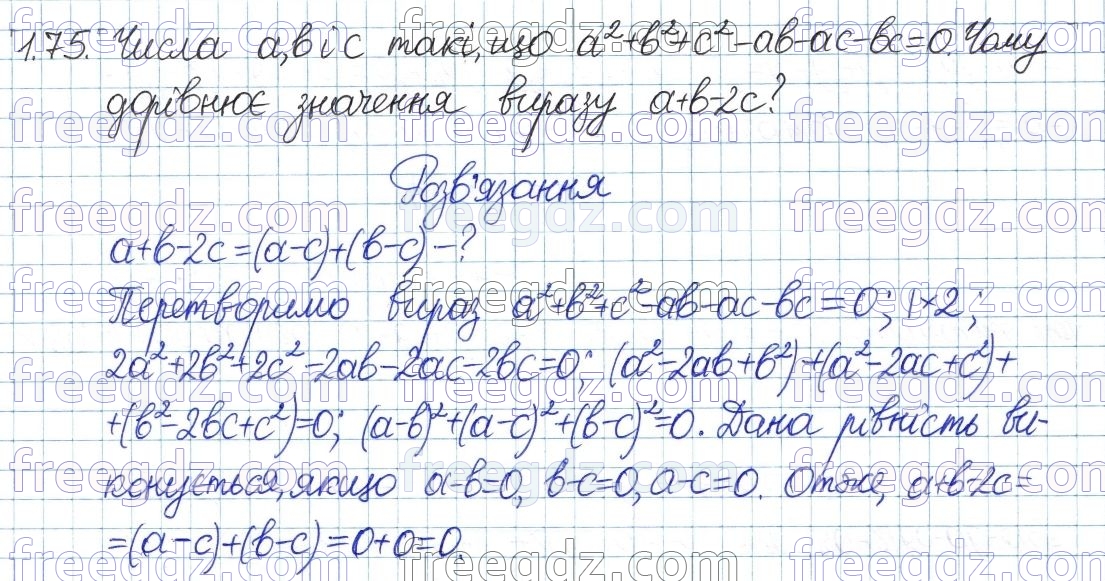 1.75. Числа a,в і c такі, що a²+в²+c²-aв-ac-вc=0. Чому
дорівнює значення виразу a+в-2c?
Розв'язання
a+в-2c=(a-c)+(в-c)-?
Перетворимо вираз a²+в²+c²-aв-ac-вc=0; |×2;
2a²+2в²+2c²-2aв-2ac-2вc=0; (a²-2aв+в²)+(a²-2ac+c²)+
+(в²-2вc+c²)=0; (a-в)²+(a-c)²+(в-c)²=0. Дана рівність ви-
конується, якщо a-в=0, в-c=0, a-c=0. Отже, a+в-2c=
=(a-c)+(в-c)=0+0=0.
freegdz.com